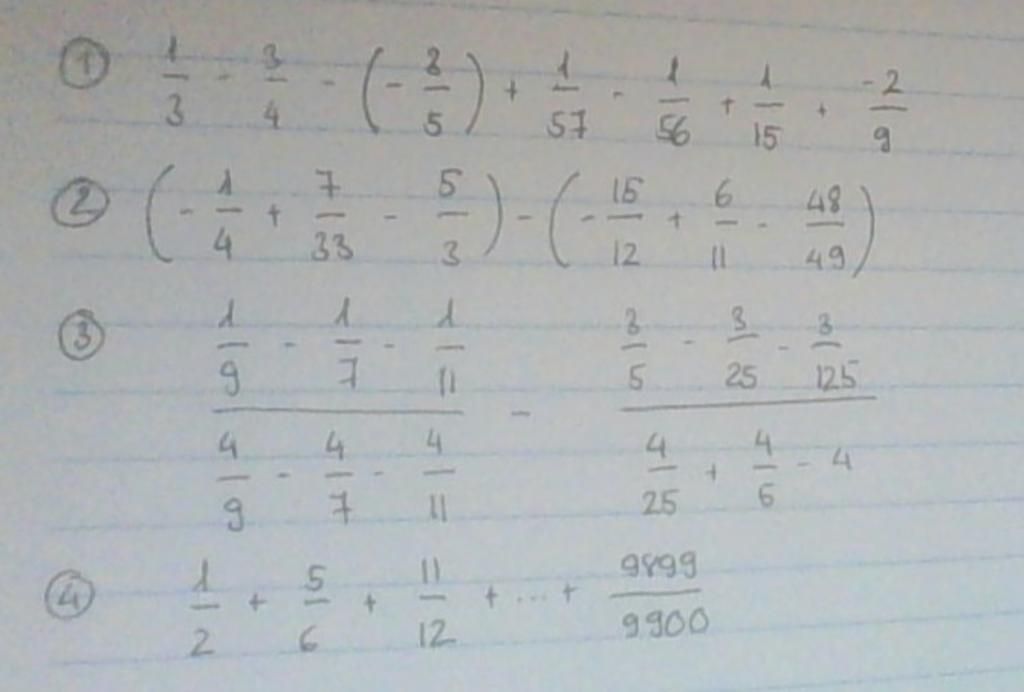 ① 1/3 - 3/4 - (- 3/5) + 1/57 - 1/56 + 1/15 + -2/9
② (- 1/4 + 7/33 - 5/3) - (- 15/12 + 6/11 - 48/49)
③ (1/9 - 1/7 - 1/11)/(4/9 - 4/7 - 4/11) - (3/5 - 3/25 - 3/125)/(4/25 + 4/5 - 4)
④ 1/2 + 5/6 + 11/12 + ... + 9899/9900